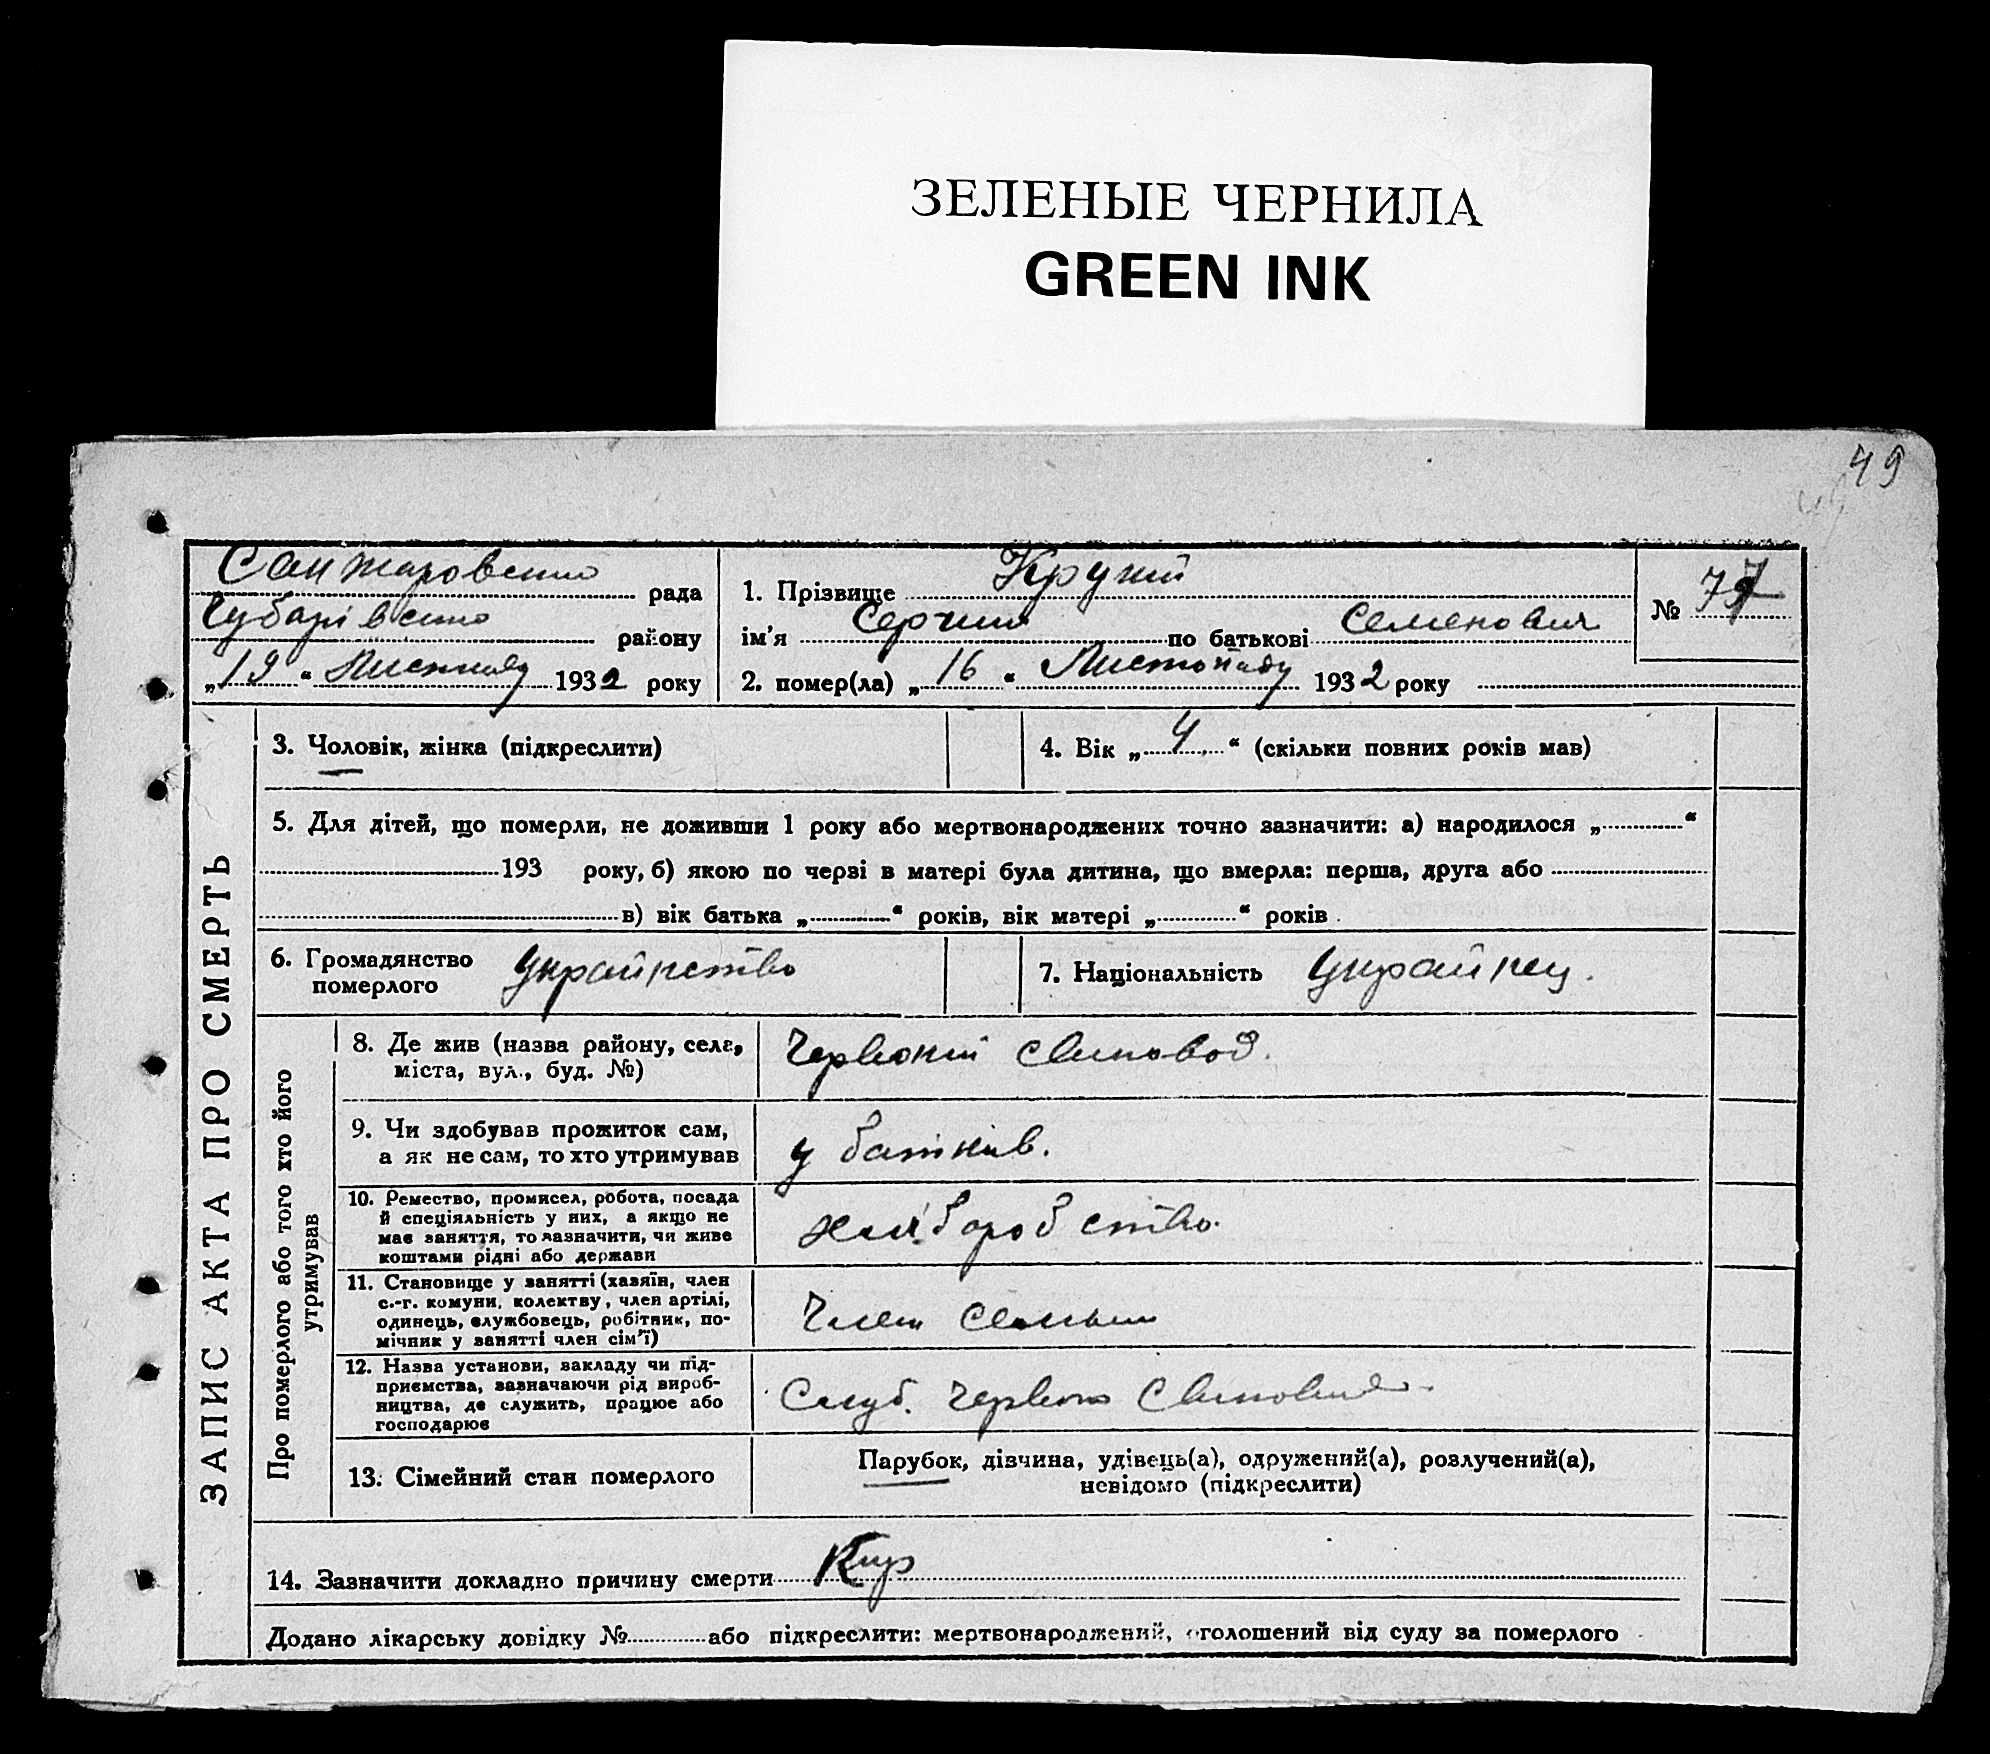 ЗЕЛЕНЫЕ ЧЕРНИЛА
GREEN INK
49
Санжаровська рада
Чубарівського району
„19“ Листопаду 1932 року
1. Прізвище
ім'я по батькові Семенович
2. помер(ла) „16“ Листопаду 1932 року
№ 77
ЗАПИС АКТА ПРО СМЕРТЬ
3. Чоловік, жінка (підкреслити)
4. Вік „4“ (скільки повних років мав)
5. Для дітей, що померли, не доживши 1 року або мертвонароджених точно зазначити: а) народилося „ “
193 року, б) якою по черзі в матері була дитина, що вмерла: перша, друга або
в) вік батька „ “ років, вік матері „ “ років
6. Громадянство
померлого
Українство
7. Національність Українец.
Про померлого або того хто його
утримував
8. Де жив (назва району, села,
міста, вул., буд. №)
Червоний Свиновод.
9. Чи здобував прожиток сам,
а як не сам, то хто утримував
у батьків.
10. Ремество, промисел, робота, посада
й спеціяльність у них, а якщо не
має заняття, то зазначити, чи живе
коштами рідні або держави
хліборобство.
11. Становище у занятті (хазяїн, член
с.-г. комуни, колектву, член артілі,
одинець, службовець, робітник, по-
мічник у занятті член сім'ї)
Член семьи
12. Назва установи, закладу чи під-
приємства, зазначаючи рід вироб-
ництва, де служить, працює або
господарює
13. Сімейний стан померлого
Парубок, дівчина, удівець(а), одружений(а), розлучений(а),
невідомо (підкреслити)
14. Зазначити докладно причину смерти Кір
Додано лікарську довідку № або підкреслити: мертвонароджений, оголошений від суду за померлого